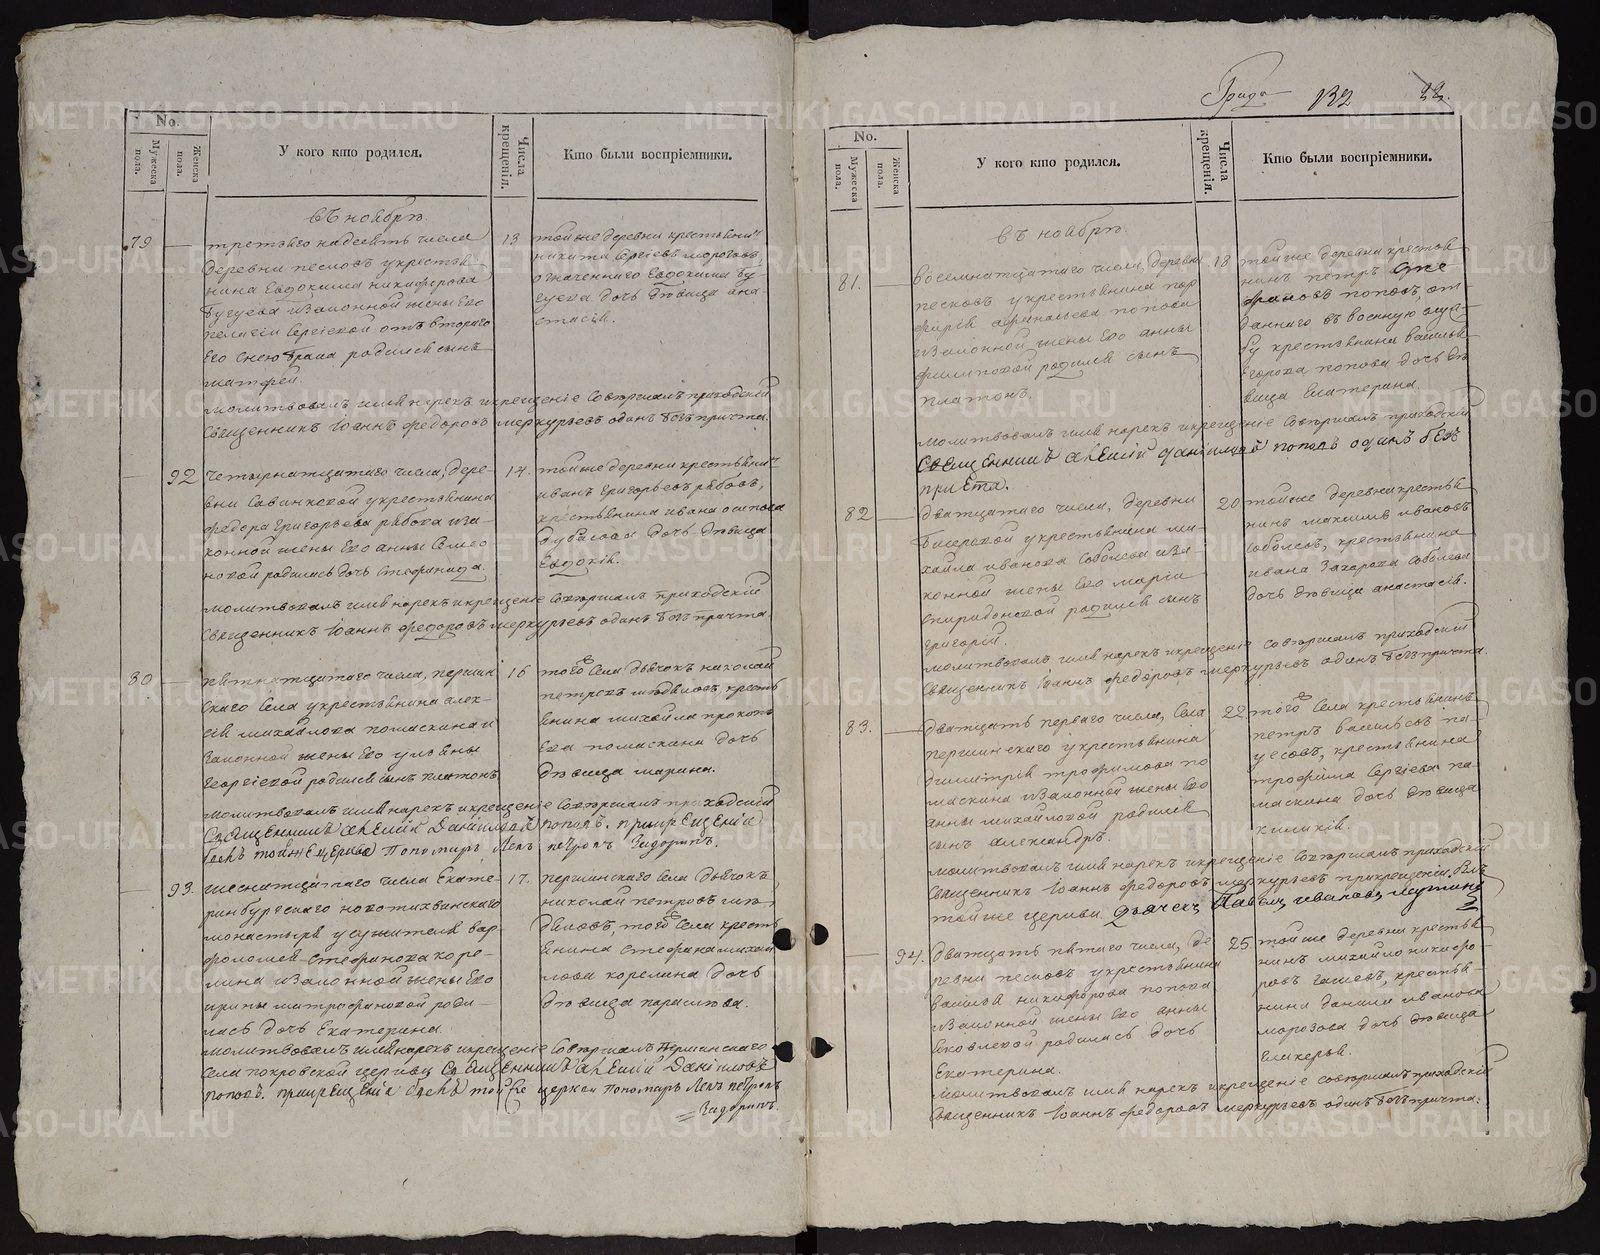 No.
Мужеска пола.
Женска пола.
У кого кто родился.
Числа крещенія.
Кто были воспріемники.
въ ноябрѣ.
79
третьяго надесять числа
деревни песковъ укрестья-
нина Евдокима никифорова
бугуева изаконной жены Его
пелагіи Сергіевой отъ втораго
Его Снею брака родился сынъ
матфей.
13
тойже деревни крестьянинъ
никита Сергіевъ морозовъ,
означеннаго Евдокима бу
гуева дочь дѣвица ана
стасія.
молитвовалъ имя нарекъ икрещеніе Совершалъ приходскій
Священникъ Іоаннъ федоровъ меркурьевъ одинъ безъ причта.
92
Четырнатцатаго числа, дере-
вни Савинской укрестьянина
федора Григорьева рябова иза-
конной жены Его анны Семео
новой родилась дочь Стефанида.
14.
тойже деревни крестьянинъ
иванъ Григорьевъ рябовъ,
крестьянина ивана осипова
дочь дѣвица
Евдокія.
молитвовалъ имя нарекъ икрещеніе Совершалъ приходскій
Священникъ Іоаннъ федоровъ меркурьевъ одинъ безъ причта.
80
пятнатцатаго числа, першин
скаго Села укрестьянина алек-
сія михайлова помаскина и
Законной жены Его ульяны
Георгіевой родился сынъ платонъ
16
того Села дьячокъ николай
петровъ крестья
янина михайла прокопь
Ева помаскина дочь
дѣвица марина.
молитвовалъ имя нарекъ икрещеніе Совершалъ приходскій
Священникъ алексій Даніиловъ поповъ. прикрещеніи
былъ тойже церкви Пономарь Левъ петровъ
93.
шеснатцатаго числа Екате-
ринбургскаго новотихвинскаго
монастыря услужителя вар-
фоломея Стефанова коре-
лина изаконной жены Его
ирины митрофановой роди-
лась дочь Екатерина.
17.
першинскаго Села дьячокъ
николай петровъ
того Села кресть
янина Стефана михай
лова корелина дочь
дѣвица параскева.
молитвовалъ имя нарекъ икрещеніе Совершалъ першинскаго
села покровской церкви Священникъ алексій Даніиловъ
поповъ. прикрещеніи былъ тойже церкви Пономарь Левъ петровъ
132
22.
No.
Мужеска пола.
Женска пола.
У кого кто родился.
Числа крещенія.
Кто были воспріемники.
въ ноябрѣ.
81.
Восемнатцатаго числа, деревни
песковъ укрестьянина пор
фирія афанасьева попова
изаконной жены Его анны
филиповой родился сынъ
платонъ.
18
тойже деревни крестья
нинъ петръ Сте
фановъ поповъ, от-
даннаго въ военную служ
бу крестьянина василья
Егорова попова дочь дѣ
вица Екатерина.
молитвовалъ имя нарекъ икрещеніе Совершалъ приходскій
Священникъ алексій даніиловъ поповъ одинъ безъ
причта.
82
дватцатаго числа, деревни
укрестьянина ми-
хайла иванова Соболева иза-
конной жены Его маріи
Спиридоновой родился сынъ
Григорій.
20
тойже деревни крестья
нинъ максимъ ивановъ
Соболевъ, крестьянина
ивана Захарова Соболева
дочь дѣвица анастасія.
молитвовалъ имя нарекъ икрещеніе Совершалъ приходскій
Священникъ Іоаннъ федоровъ меркурьевъ одинъ безъ причта.
83.
дватцать перваго числа, Села
першинскаго укрестьянина
димитрія трофимова по
маскина изаконной жены Его
анны михайловой родился
сынъ александръ.
22
того Села крестьянинъ
петръ васильевъ
крестьянина
трофима Сергіева по-
маскина дочь дѣвица
киликія.
молитвовалъ имя нарекъ икрещеніе Совершалъ приходскій
Священникъ Іоаннъ федоровъ меркурьевъ прикрещеніи былъ
тойже церкви дьячекъ Павелъ ивановъ
94.
дватцать пятаго числа, де
ревни песковъ укрестьянина
василья никифорова попова
изаконной жены Его анны
яковлевой родилась дочь
Екатерина.
25
тойже деревни крестья
нинъ михайло никифо
ровъ крестья-
нина данила иванова
морозова дочь дѣвица
гликерья.
молитвовалъ имя нарекъ икрещеніе совершалъ приходскій
священникъ Іоаннъ федоровъ меркурьевъ одинъ безъ причта.
METRIKI.GASO-URAL.RU